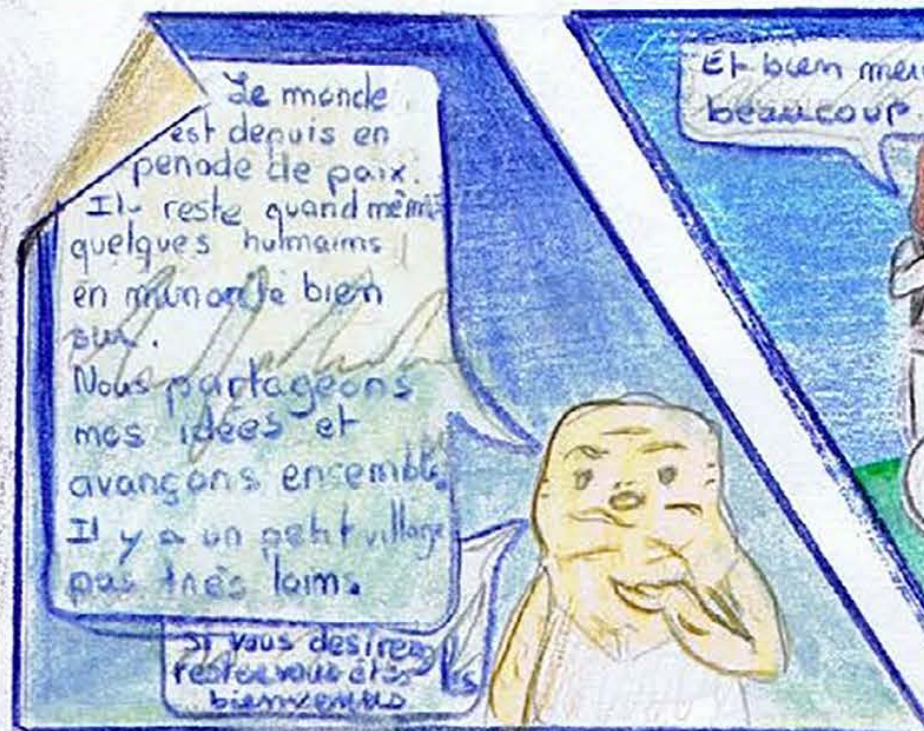 Le monde
est depuis en
periode de paix.
Il reste quand même
quelques hulmains
en minorité bien
sur.
Nous partageons
mos idées et
avançons ensemble.
Il y a un petit village
pas très loims.
Si vous desirez
rester vous êtes
bienvenus
Et bien mer
beaucoup